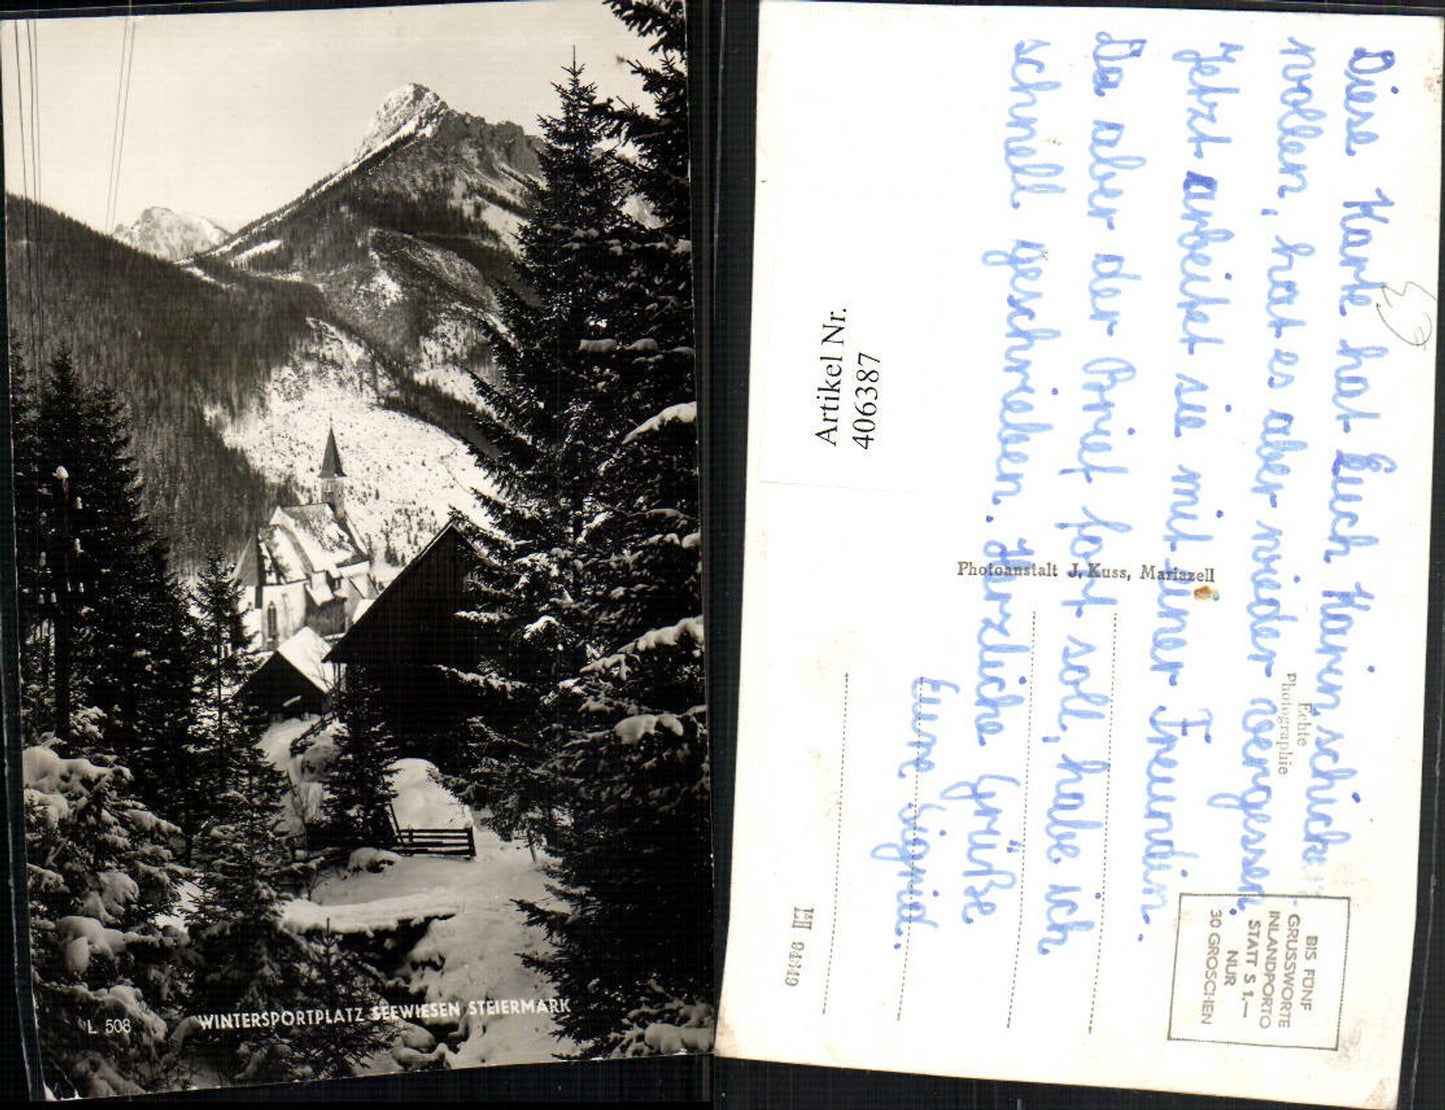 L 508
WINTERSPORTPLATZ SEEWIESEN STEIERMARK
Artikel Nr.
406387
Diese Karte hat Euch Karin schicken
wollen, hat es aber wieder vergessen.
Jetzt arbeitet sie mit einer Freundin.
Da aber der Brief fort soll, habe ich
schnell geschrieben. Herzliche Grüße
Eure Sigrid.
Photoanstalt J. Kuss, Mariazell
Echte
Photographie
BIS FÜNF
GRUSSWORTE
INLANDPORTO
STATT S 1.—
NUR
30 GROSCHEN